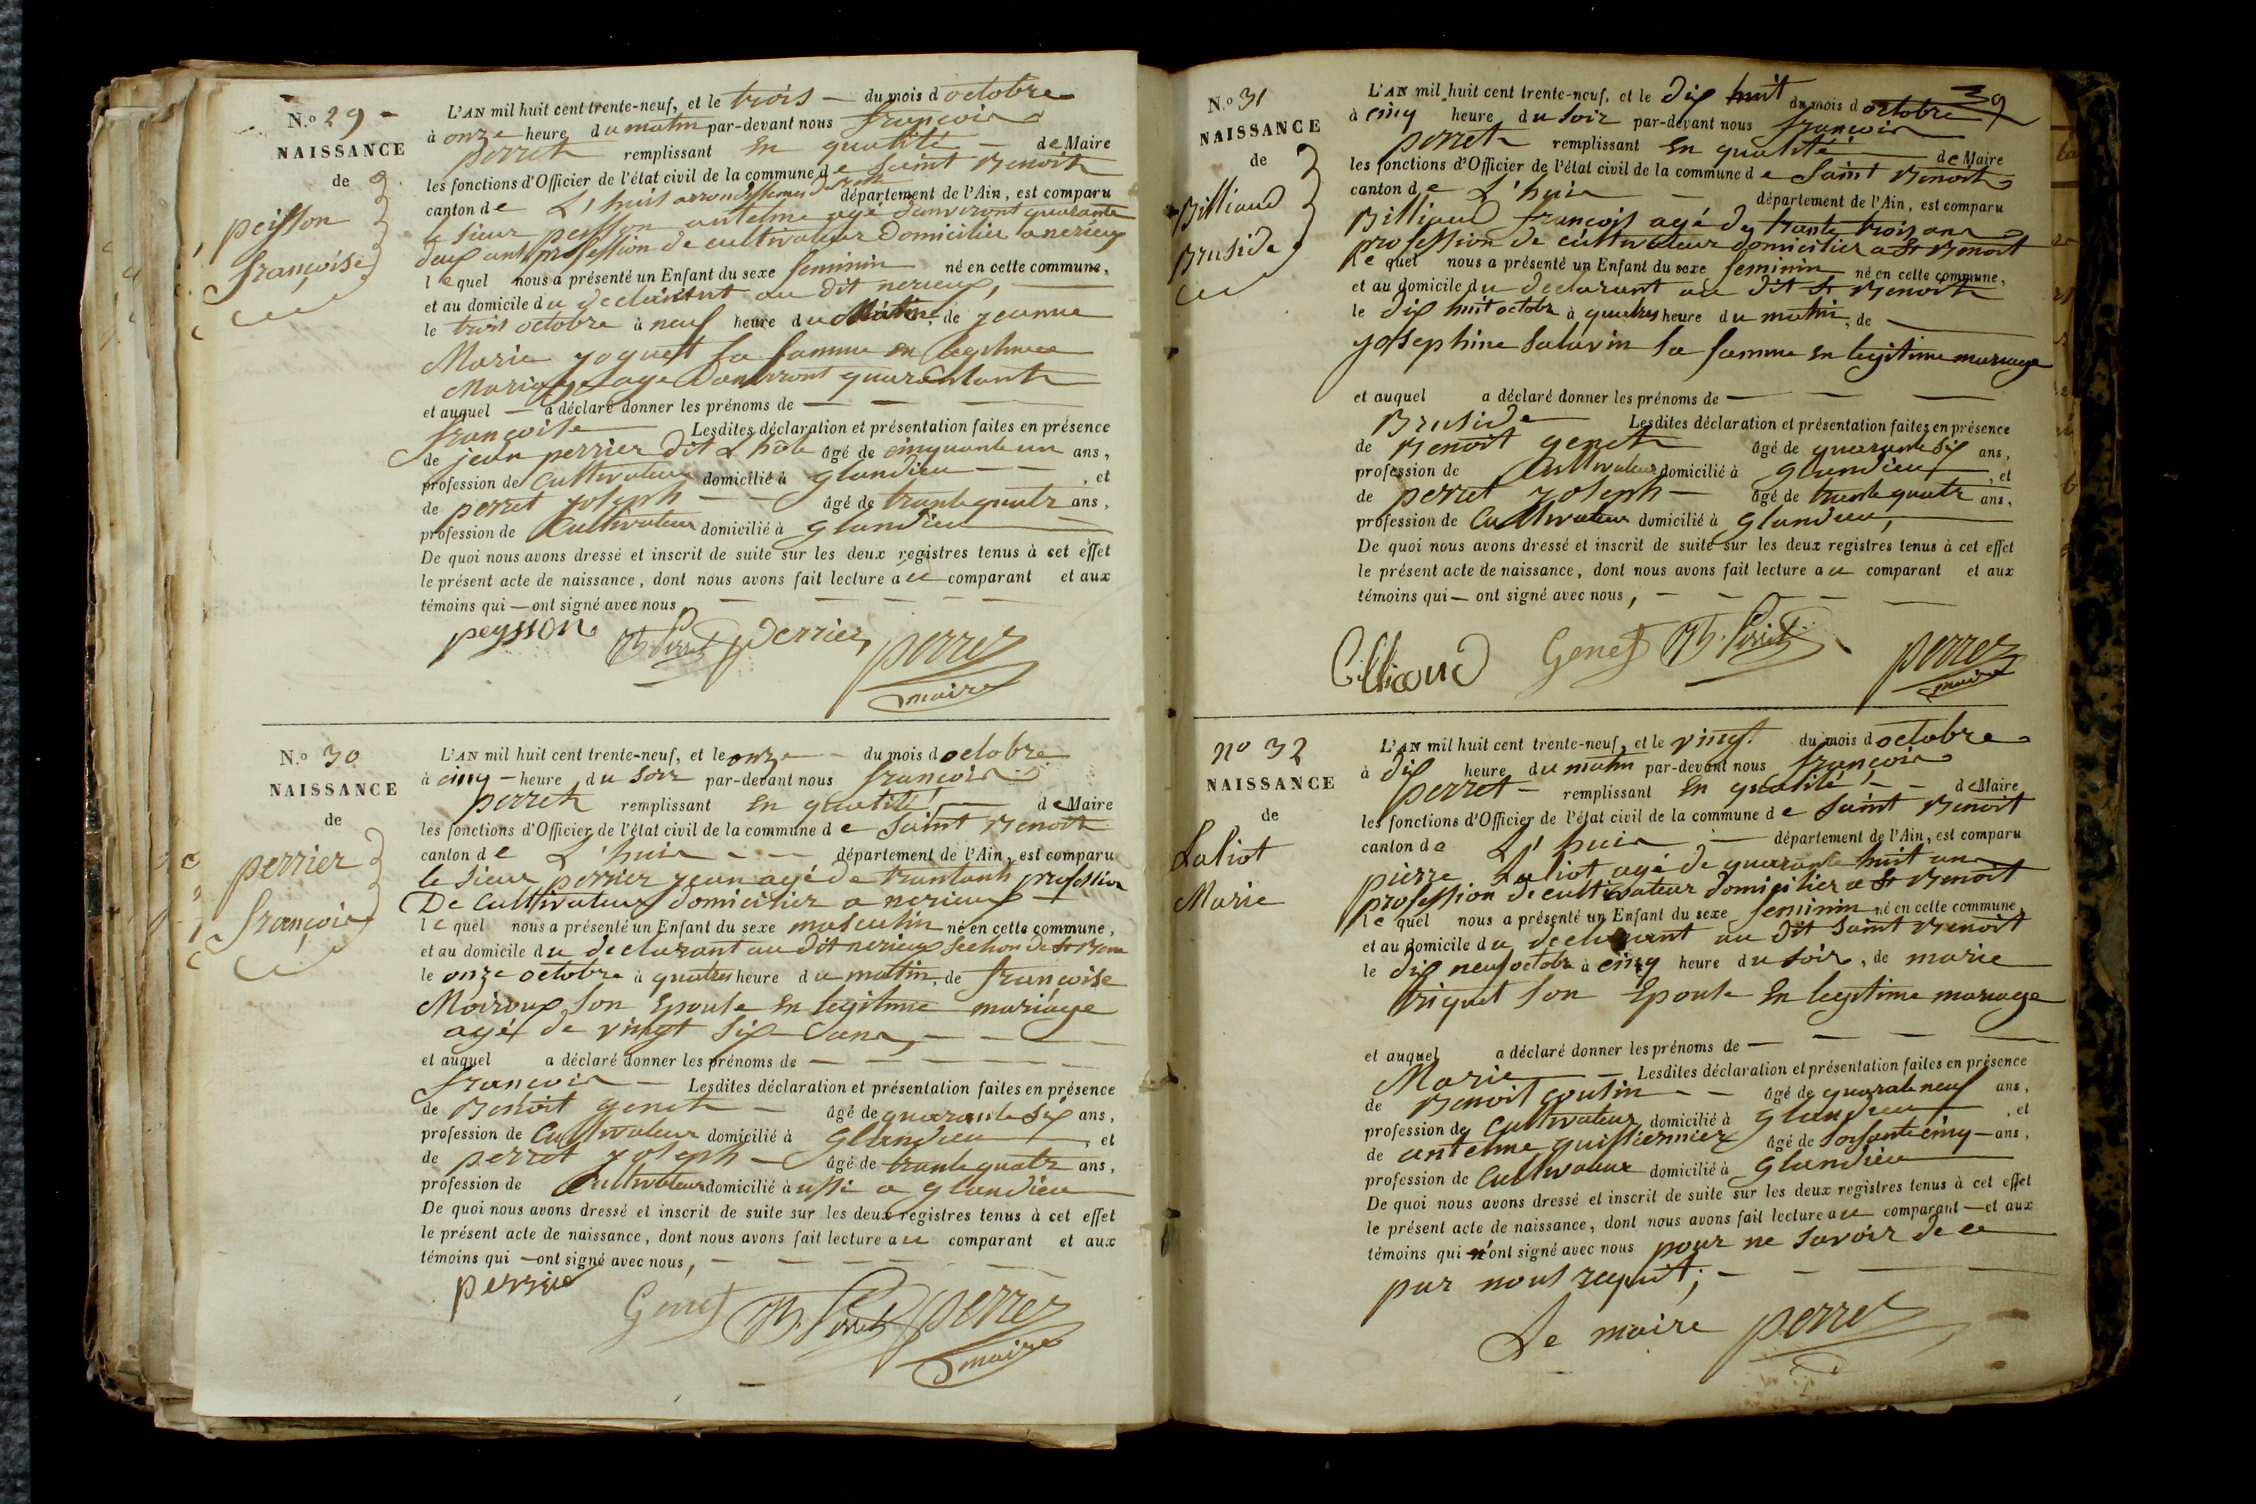 N.º 29
NAISSANCE
de
peisson
françoise
L'AN mil huit cent trente-neuf, et le trois du mois d octobre
à onze heure du matin par-devant nous françois
perret remplissant en qualité de Maire
les fonctions d'Officier de l'état civil de la commune de saint Benoit
canton de L'huis arrondissement département de l'Ain, est comparu
le sieur peisson antelme agé d'environt quarante
deux ans profession de cultivateur domicilier a nerieux
lequel nous a présenté un Enfant du sexe feminin né en cette commune,
et au domicile du declarant au dit nerieux,
le trois octobre à neuf heure du Matin, de jeanne
Marie joguet sa famme en legitimee
Mariage age d'anviront quarantants
et auquel a déclaré donner les prénoms de
françoise Lesdites déclaration et présentation faites en présence
de jean perrier dit L'hôte âgé de cinquante un ans,
profession de Cultivateur domicilié à glandieu , et
de perret joseph âgé de trante quatr ans,
profession de Cultivateur domicilié à glandieu
De quoi nous avons dressé et inscrit de suite sur les deux registres tenus à cet effet
le présent acte de naissance, dont nous avons fait lecture au comparant et aux
témoins qui ont signé avec nous,
peysson Perret perrier perret
maire
N.º 30
NAISSANCE
de
perrier
françois
L'AN mil huit cent trente-neuf, et le onze du mois d octobre
à cinq heure du soir par-devant nous françois
perret remplissant en qualité, de Maire
les fonctions d'Officier de l'état civil de la commune de saint Benoit
canton de L'huis département de l'Ain, est comparu
le sieur perrier jean agé de trantants profession
De Cultivateur domicilier a nerieux
lequel nous a présenté un Enfant du sexe masculin né en cette commune,
et au domicile du declarant au dit nerieux section de St Benoi
le onze octobre à quatres heure du matin, de françoise
Moiroux son Epouse en legitime mariage
agé de vingt six ans,
et auquel a déclaré donner les prénoms de
françois Lesdites déclaration et présentation faites en présence
de Benoit genet âgé de quarante six ans,
profession de Cultivateur domicilié à glandieu , et
de perret joseph âgé de trante quatr ans,
profession de Cultivateur domicilié à ussi a glandieu
De quoi nous avons dressé et inscrit de suite sur les deux registres tenus à cet effet
le présent acte de naissance, dont nous avons fait lecture au comparant et aux
témoins qui ont signé avec nous,
perrier Genet Perret perret
maire
39
N.º 31
NAISSANCE
de
Billiaud
Bruside
L'AN mil huit cent trente-neuf, et le dix huit du mois d octobre
à cinq heure du soir par-devant nous françois
perret remplissant en qualité de Maire
les fonctions d'Officier de l'état civil de la commune de saint Benoit
canton de L'huis département de l'Ain, est comparu
Billiaud françois agé de trante trois ans
profession de cultivateur domicilier a St Benoit
lequel nous a présenté un Enfant du sexe feminin né en cette commune,
et au domicile du declarant au dit St Benoit
le dix huit octobr à quatres heure du matin, de
josephine Salavin sa famme en legitime mariage
et auquel a déclaré donner les prénoms de
Bruside Lesdites déclaration et présentation faites en présence
de Benoit genet âgé de quarante six ans,
profession de Cultivateur domicilié à glandieu , et
de perret joseph âgé de trante quatr ans,
profession de Cultivateur domicilié à glandieu,
De quoi nous avons dressé et inscrit de suite sur les deux registres tenus à cet effet
le présent acte de naissance, dont nous avons fait lecture au comparant et aux
témoins qui ont signé avec nous,
billiaud Genet Perret perret
maire
nº 32
NAISSANCE
de
Laliot
Marie
L'AN mil huit cent trente-neuf, et le vingt du mois d octobre
à dix heure du matin par-devant nous françois
perret remplissant en qualité de Maire
les fonctions d'Officier de l'état civil de la commune de saint Benoit
canton de L'huis département de l'Ain, est comparu
pierre Laliot agé de quarante huit ans
profession de cultivateur domicilier a St Benoit
lequel nous a présenté un Enfant du sexe feminin né en cette commune,
et au domicile du declarant au dit saint Benoit
le dix neuf octobr à cinq heure du soir, de marie
triquet son Epouse en legitime mariage
et auquel a déclaré donner les prénoms de
Marie Lesdites déclaration et présentation faites en présence
de Benoit goutin âgé de quarate neuf ans,
profession de Cultivateur domicilié à glandieu , et
de antelme guilliermier âgé de soisante cinq ans,
profession de Cultivateur domicilié à glandieu
De quoi nous avons dressé et inscrit de suite sur les deux registres tenus à cet effet
le présent acte de naissance, dont nous avons fait lecture au comparant et aux
témoins qui n'ont signé avec nous pour ne savoir de ce
par nous requit,
Le maire perret